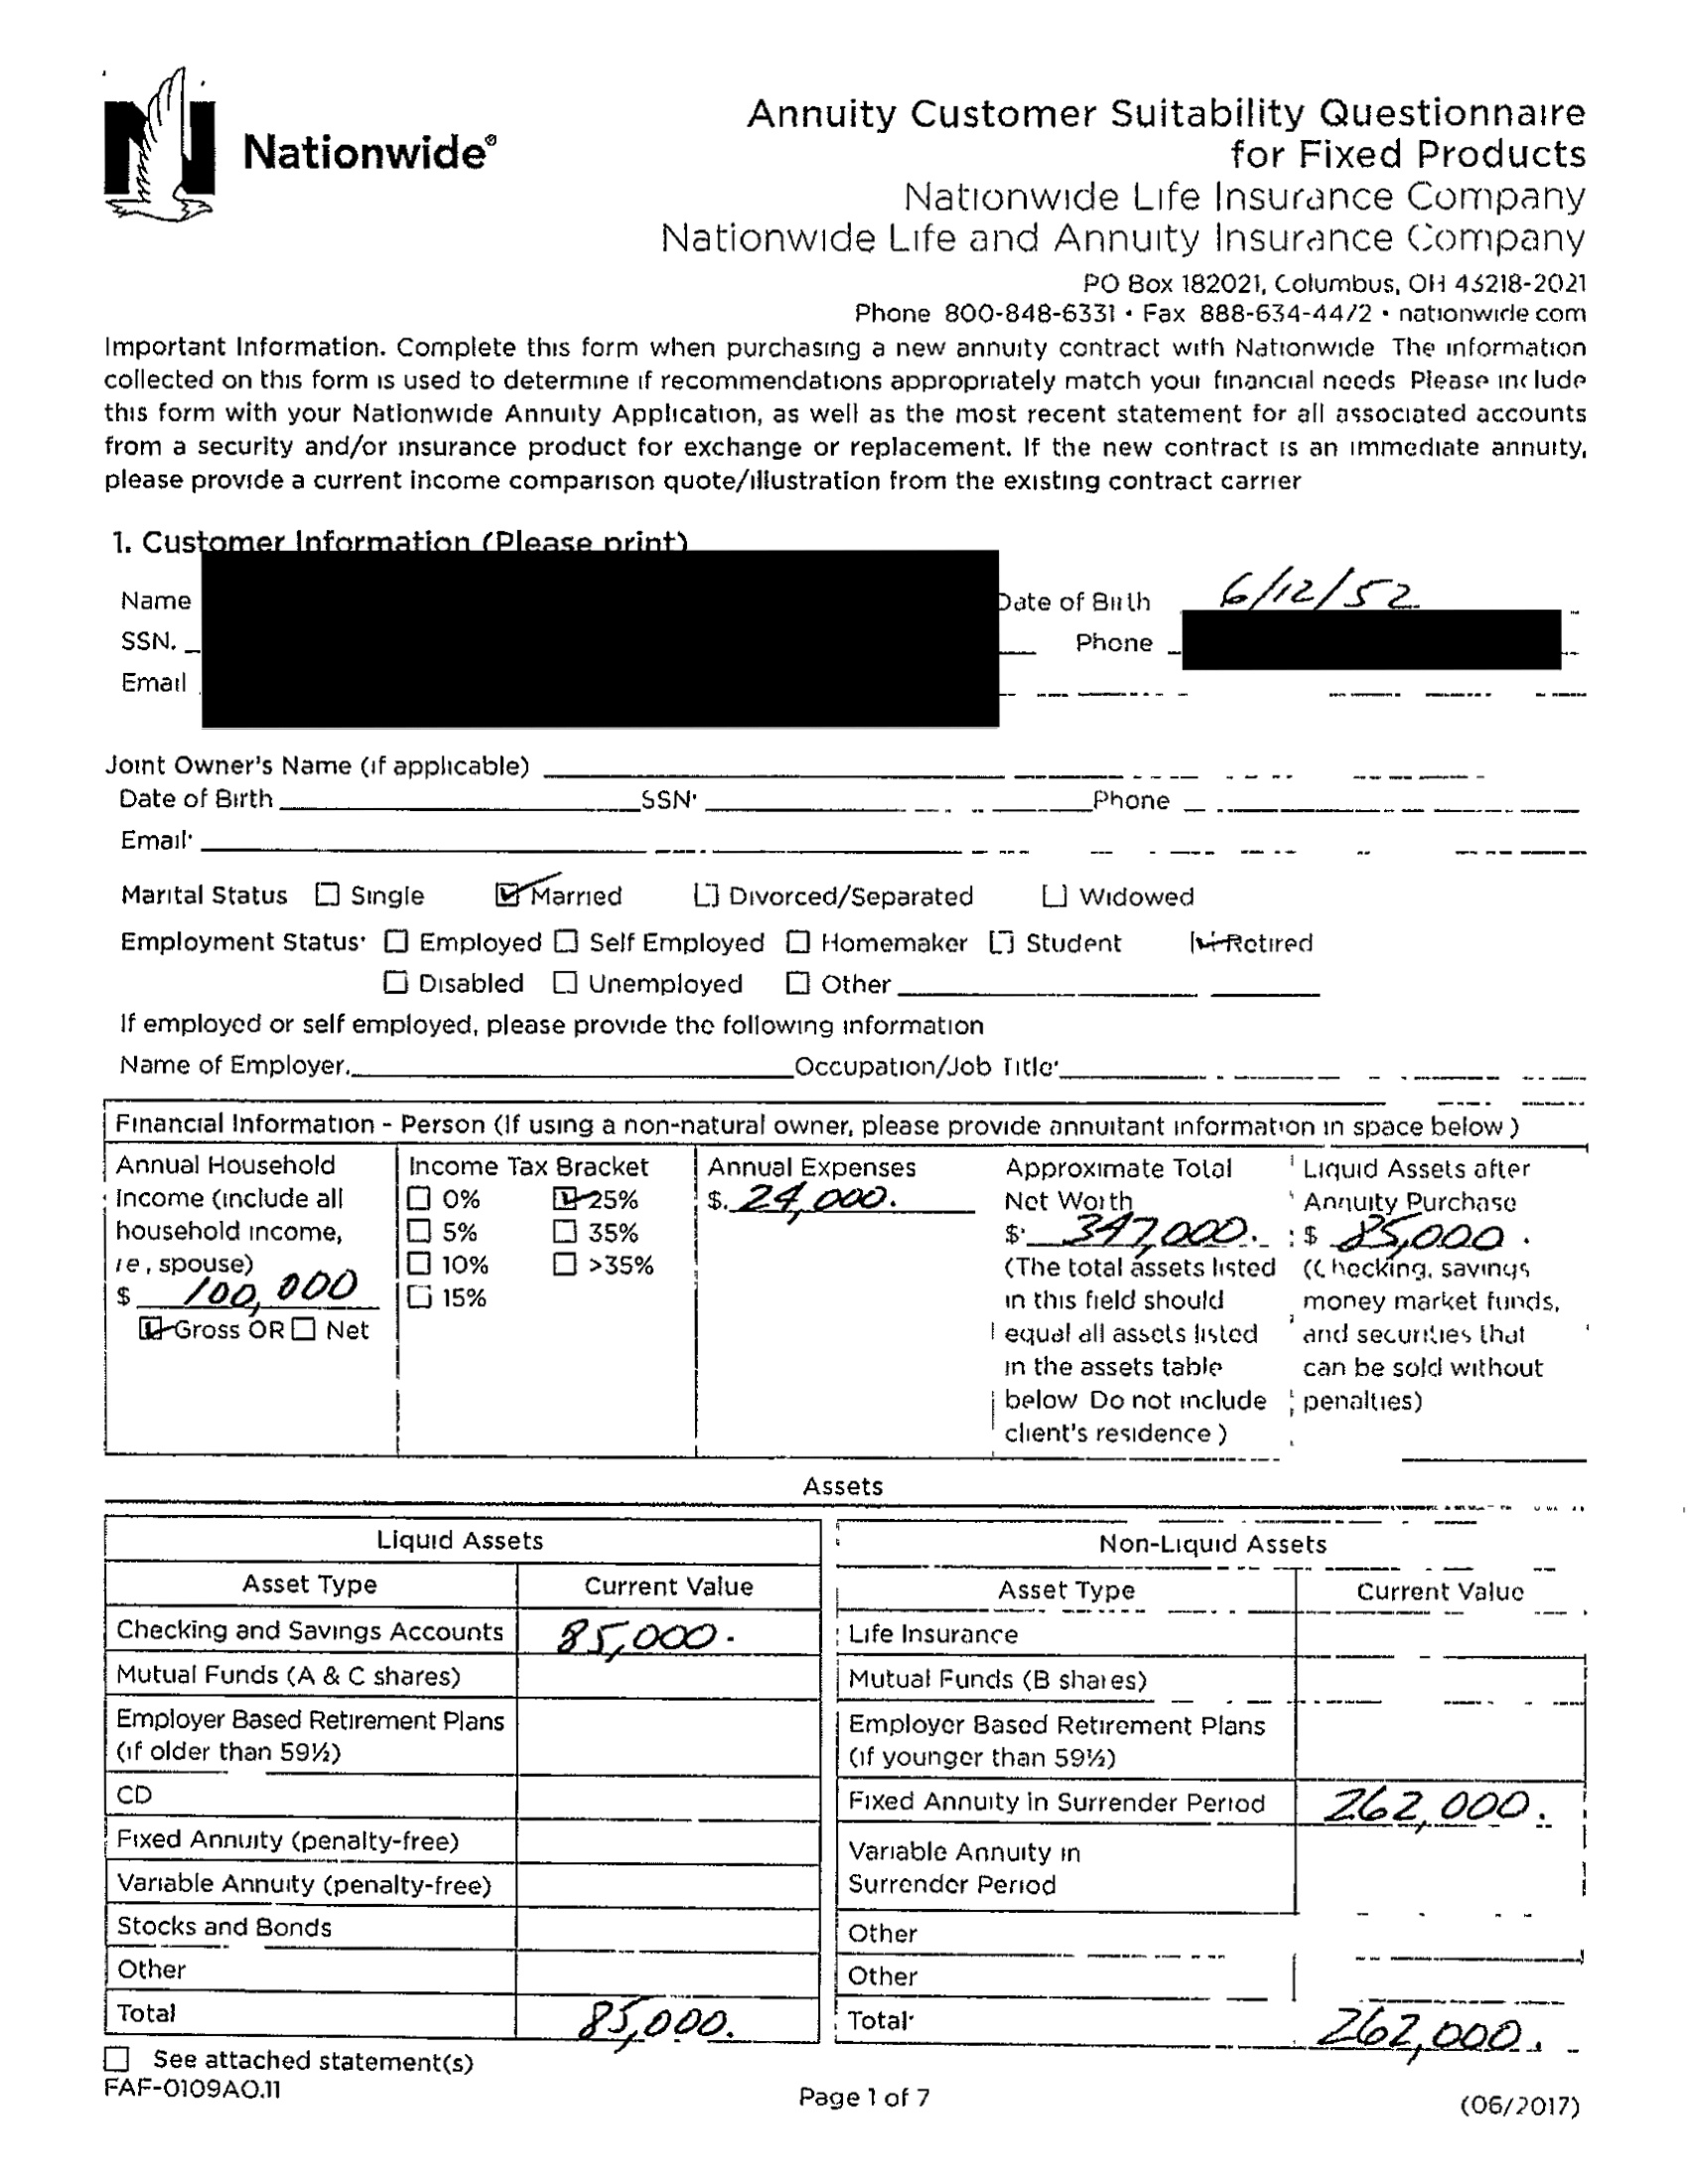 Nationwide®
Annuity Customer Suitability Questionnaire
for Fixed Products
Nationwide Life Insurance Company
Nationwide Life and Annuity Insurance Company
PO Box 182021, Columbus, OH 43218-2021
Phone 800-848-6331 • Fax 888-634-4472 • nationwide com
Important Information. Complete this form when purchasing a new annuity contract with Nationwide The information
collected on this form is used to determine if recommendations appropriately match your financial needs Please include
this form with your Nationwide Annuity Application, as well as the most recent statement for all associated accounts
from a security and/or insurance product for exchange or replacement. If the new contract is an immediate annuity,
please provide a current income comparison quote/illustration from the existing contract carrier
1. Customer Information (Please print)
Name Date of Birth 6/12/52
SSN. Phone
Email
Joint Owner's Name (if applicable)
Date of Birth SSN· Phone
Email·
Marital Status ☐ Single ☑ Married ☐ Divorced/Separated ☐ Widowed
Employment Status· ☐ Employed ☐ Self Employed ☐ Homemaker ☐ Student ☑ Retired
☐ Disabled ☐ Unemployed ☐ Other
If employed or self employed, please provide the following information
Name of Employer. Occupation/Job Title·
Financial Information - Person (If using a non-natural owner, please provide annuitant information in space below )
Annual Household
Income (include all
household income,
ie , spouse)
$ 100,000
☑ Gross OR ☐ Net
Income Tax Bracket
☐ 0% ☑ 25%
☐ 5% ☐ 35%
☐ 10% ☐ >35%
☐ 15%
Annual Expenses
$. 24,000.
Approximate Total
Net Worth
$· 347,000.
(The total assets listed
in this field should
equal all assets listed
in the assets table
below Do not include
client's residence )
Liquid Assets after
Annuity Purchase
$ 85,000.
(Checking, savings
money market funds,
and securities that
can be sold without
penalties)
Assets
Liquid Assets
Asset Type Current Value
Checking and Savings Accounts 85,000.
Mutual Funds (A & C shares)
Employer Based Retirement Plans
(if older than 59½)
CD
Fixed Annuity (penalty-free)
Variable Annuity (penalty-free)
Stocks and Bonds
Other
Total 85,000.
Non-Liquid Assets
Asset Type Current Value
Life Insurance
Mutual Funds (B shares)
Employer Based Retirement Plans
(if younger than 59½)
Fixed Annuity in Surrender Period 262,000.
Variable Annuity in
Surrender Period
Other
Other
Total· 262,000.
☐ See attached statement(s)
FAF-0109AO.11
Page 1 of 7
(06/2017)